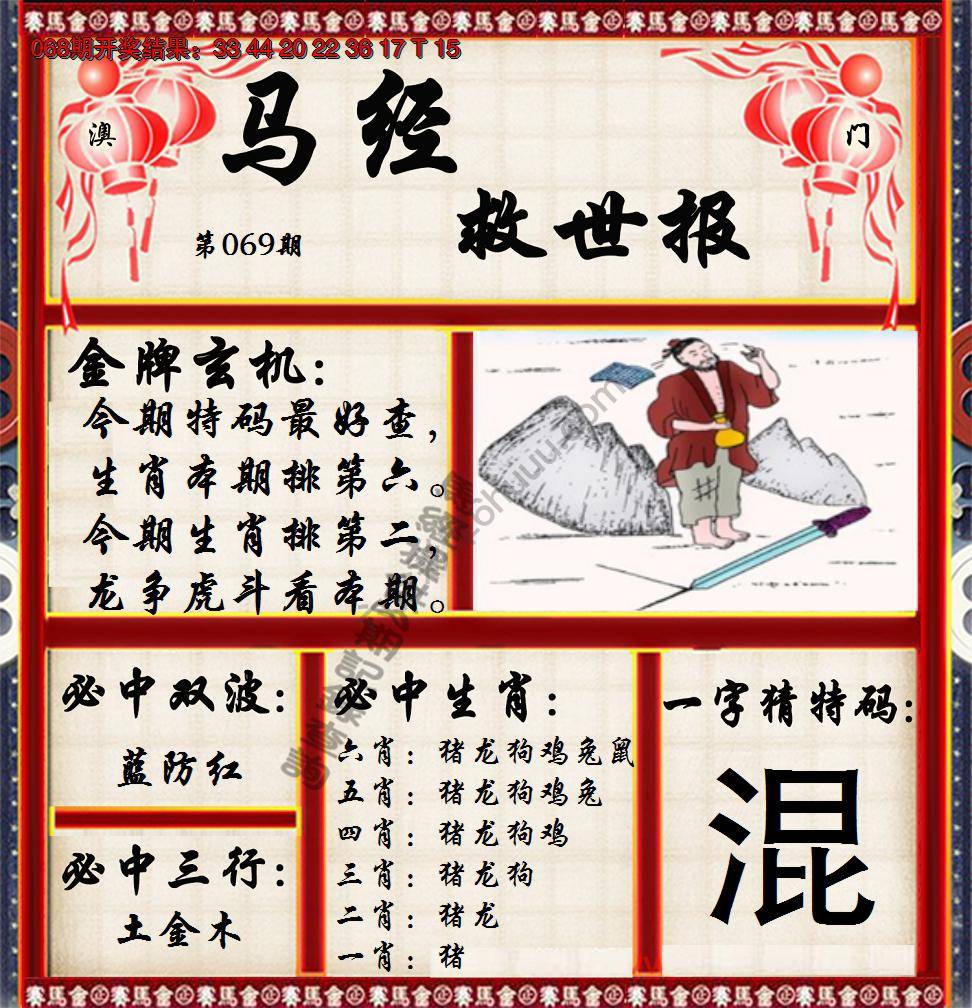 068期开奖结果：33 44 20 22 36 17 T 15
澳
门
马经
救世报
第069期
金牌玄机：
今期特码最好查，
生肖本期排第六。
今期生肖排第二，
龙争虎斗看本期。
必中双波：
蓝防红
必中三行：
土金木
必中生肖：
六肖：猪龙狗鸡兔鼠
五肖：猪龙狗鸡兔
四肖：猪龙狗鸡
三肖：猪龙狗
二肖：猪龙
一肖：猪
一字猜特码：
混